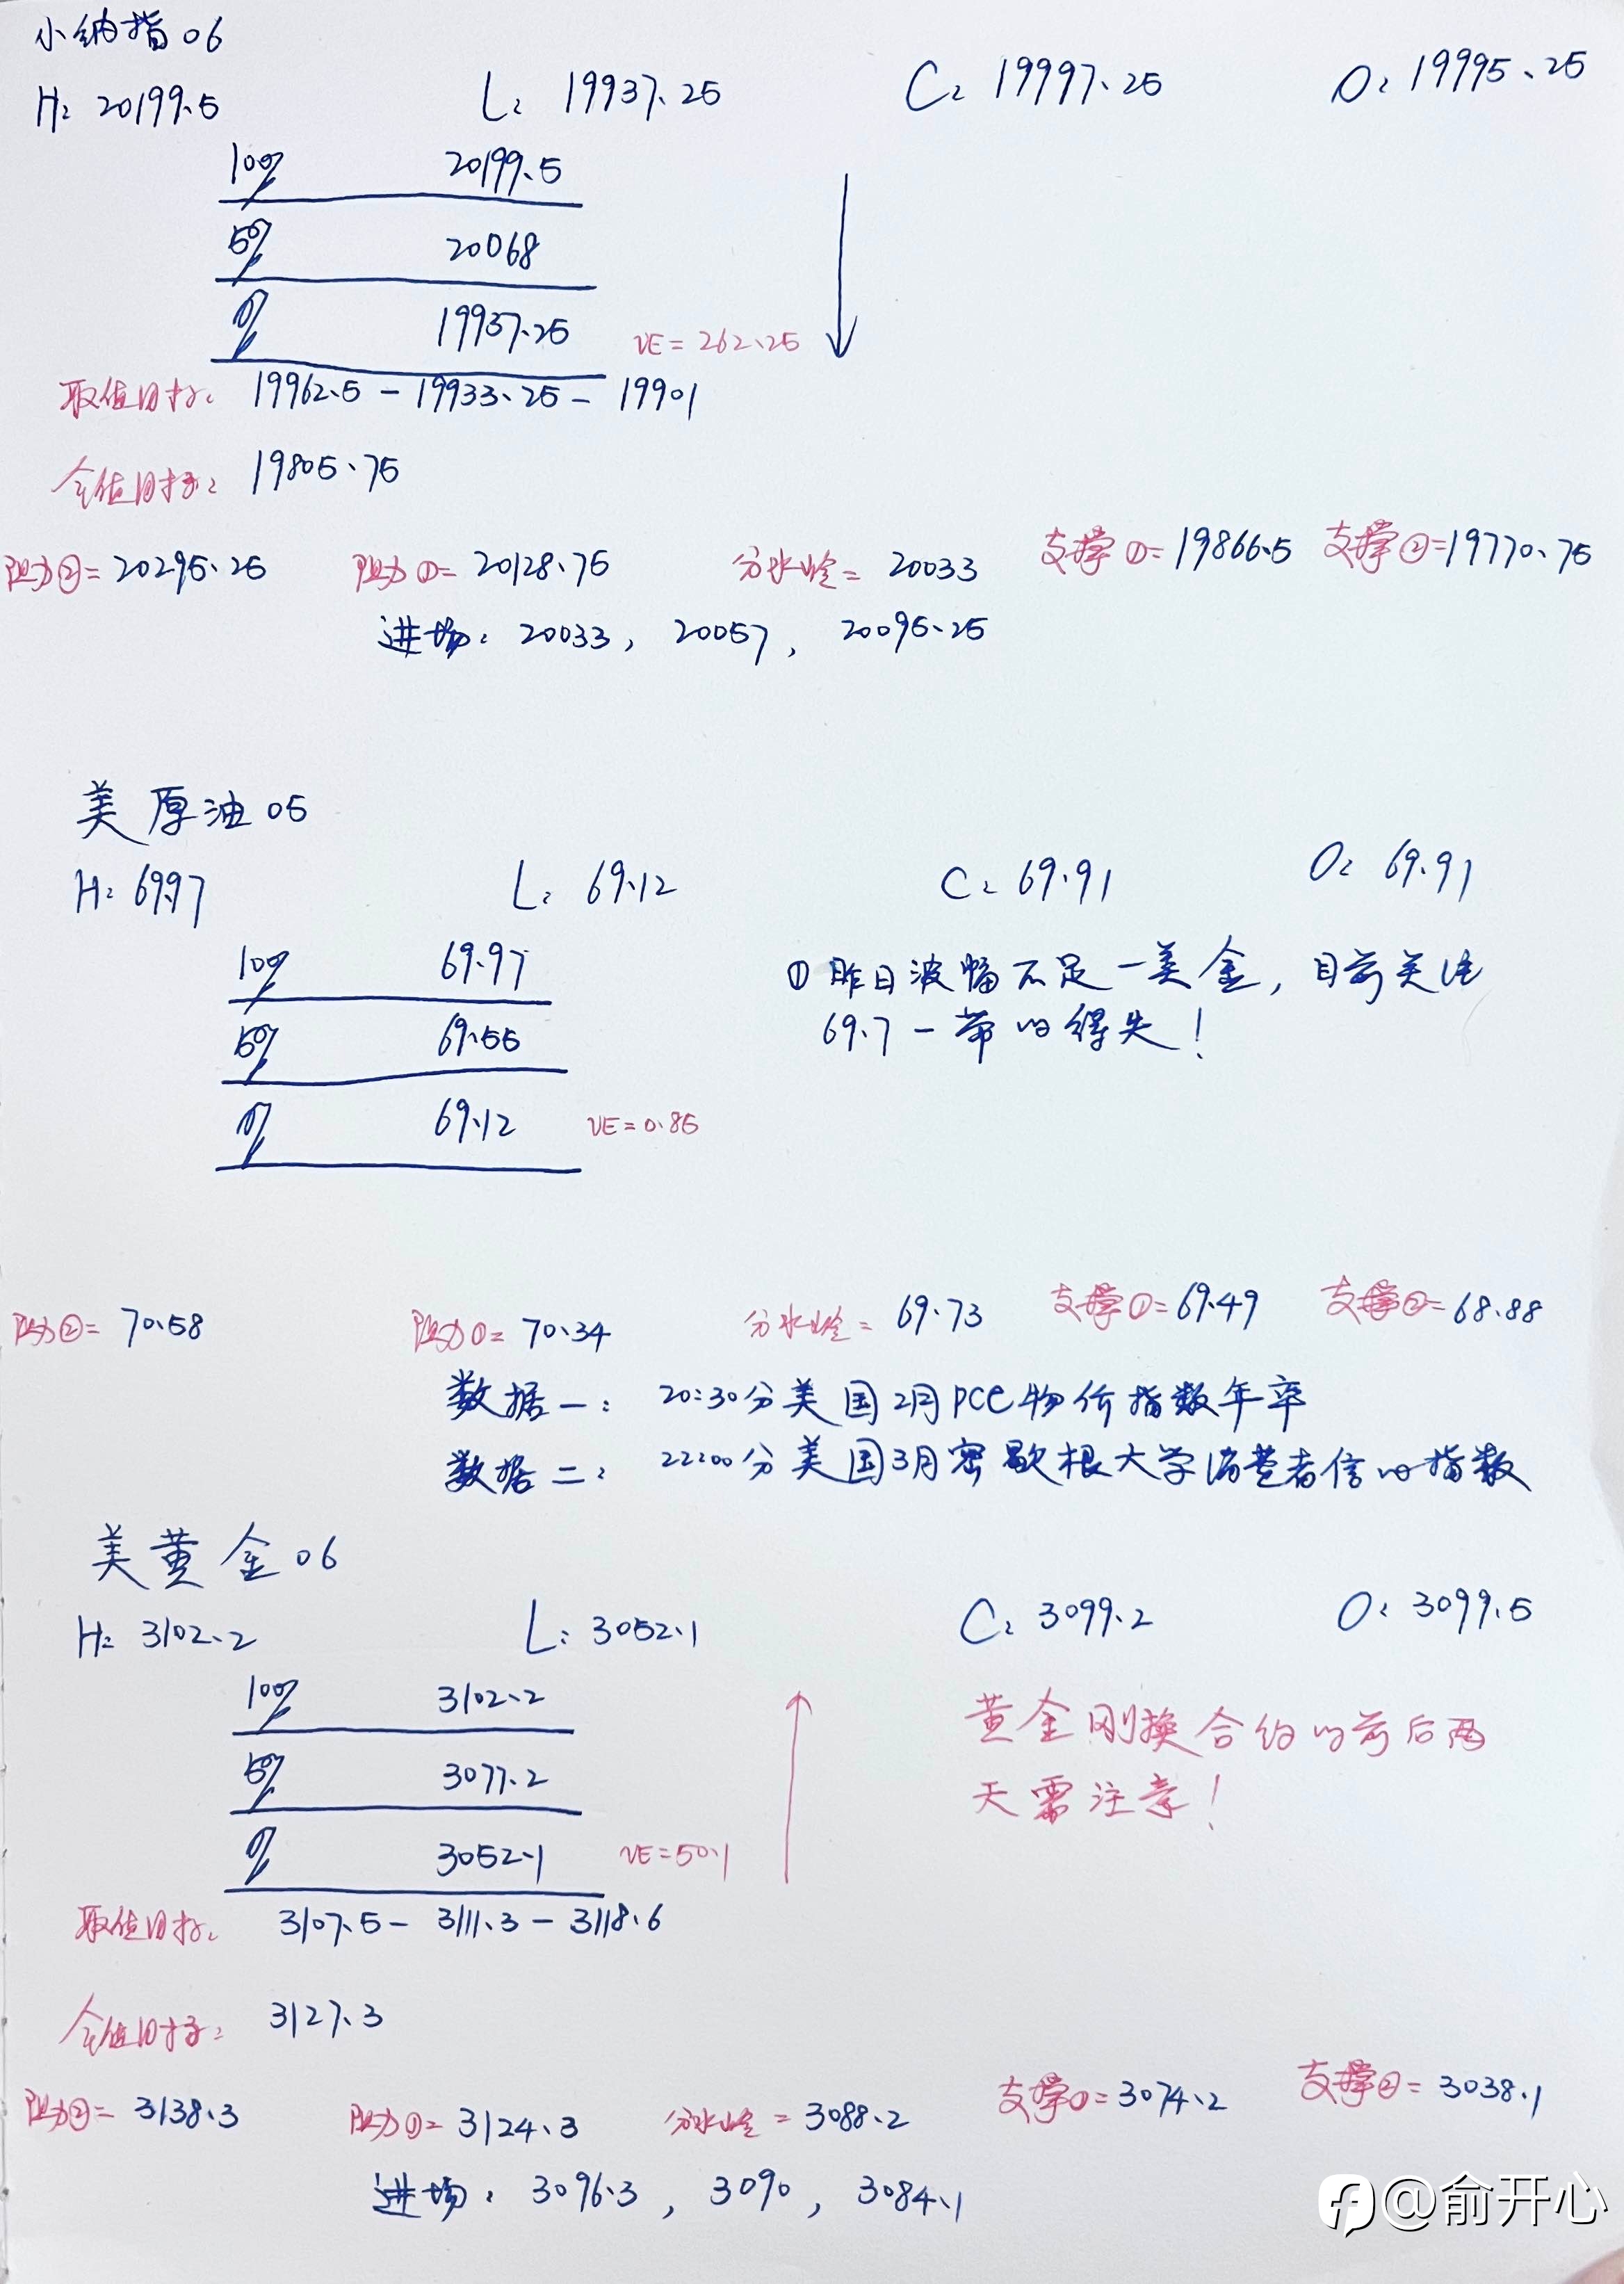 小纳指06
H: 20199.5 L: 19937.25 C: 19997.25 O: 19995.25
100% 20199.5
50% 20068
0% 19937.25 VE=262.25
取值目标: 19962.5 - 19933.25 - 19901
全值目标: 19805.75
阻力②=20295.25 阻力①=20128.75 分水岭=20033 支撑①=19866.5 支撑②=19770.75
进场: 20033, 20057, 20095.25
美原油05
H: 69.97 L: 69.12 C: 69.91 O: 69.91
100% 69.97
50% 69.55
0% 69.12 VE=0.85
①昨日波幅不足一美金,目前关注
69.7一带的得失!
阻力②=70.58 阻力①=70.34 分水岭=69.73 支撑①=69.49 支撑②=68.88
数据一: 20:30分美国2月PCE物价指数年率
数据二: 22:00分美国3月密歇根大学消费者信心指数
美黄金06
H: 3102.2 L: 3052.1 C: 3099.2 O: 3099.5
100% 3102.2
50% 3077.2
0% 3052.1 VE=50.1
黄金刚换合约的前后两
天需注意!
取值目标: 3107.5 - 3111.3 - 3118.6
全值目标: 3127.3
阻力②=3138.3 阻力①=3124.3 分水岭=3088.2 支撑①=3074.2 支撑②=3038.1
进场: 3096.3, 3090, 3084.1
@俞开心